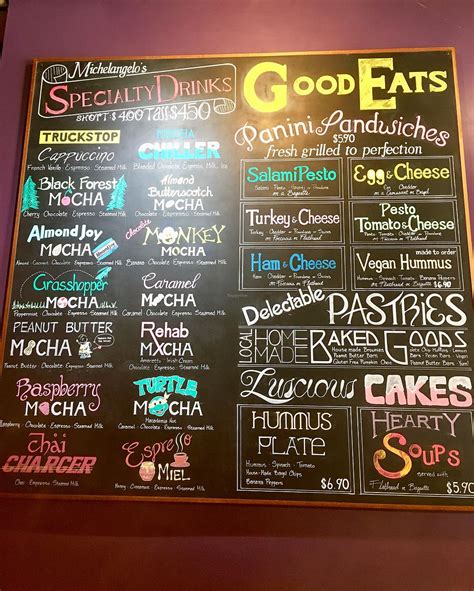 Michelangelo's
SPECIALTY DRINKS
SHORT $4.00 TALL $4.50
TRUCKSTOP
Cappuccino
French Vanilla Espresso Steamed Milk
Black Forest
MOCHA
Cherry Chocolate Espresso Steamed Milk
Almond Joy
MOCHA
Almond Coconut Chocolate Espresso Steamed Milk
Grasshopper
MOCHA
Peppermint Chocolate Espresso Steamed Milk
PEANUT BUTTER
MOCHA
Peanut Butter Chocolate Espresso Steamed Milk
Raspberry
MOCHA
Raspberry Chocolate Espresso Steamed Milk
Thai
CHARGER
Chai Espresso Steamed Milk
MOCHA
CHILLER
Blended Chocolate Espresso Milk Ice
Almond
Butterscotch
MOCHA
Chocolate
MONKEY
MOCHA
Banana Chocolate Espresso Steamed Milk
Caramel
MOCHA
Caramel Chocolate Espresso Steamed Milk
Rehab
MXCHA
Amaretto Irish Cream
Chocolate Espresso Steamed Milk
TURTLE
MOCHA
Macadamia Nut
Caramel Chocolate Espresso Steamed Milk
Espresso
MIEL
Honey Cinnamon Espresso Steamed Milk
GOOD EATS
Panini Sandwiches
$5.90
fresh grilled to perfection
Salami Pesto
Salami Pesto Tomato Provolone
on a Baguette
Egg & Cheese
Egg Cheddar
on Croissant or Bagel
Turkey & Cheese
Turkey Cheddar Tomato
on Focaccia or Flatbread
Pesto
Tomato & Cheese
on Focaccia or Flatbread
Ham & Cheese
Ham Cheddar Tomato
on Focaccia or Flatbread
made to order
Vegan Hummus
Hummus Spinach Tomato Banana Peppers
on Focaccia or Flatbread $6.90
Delectable PASTRIES
LOCAL HOME MADE BAKED GOODS
House made Brownies
Peanut Butter Bars
Gluten Free Pumpkin
Luscious CAKES
HUMMUS
PLATE
Hummus Spinach Tomato
House-Made Bagel Chips
Banana Peppers
$6.90
HEARTY
SOUPS
served with
Flatbread or Baguette
$5.90